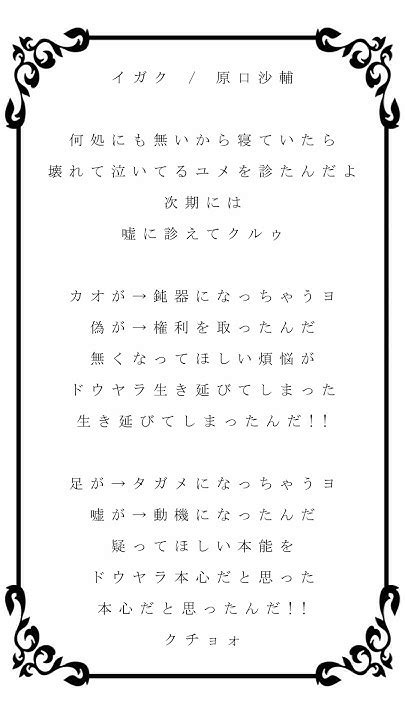 イガク / 原口沙輔
何処にも無いから寝ていたら
壊れて泣いてるユメを診たんだよ
次期には
嘘に診えてクルゥ
カオが→鈍器になっちゃうヨ
偽が→権利を取ったんだ
無くなってほしい煩悩が
ドウヤラ生き延びてしまった
生き延びてしまったんだ!!
足が→タガメになっちゃうヨ
嘘が→動機になったんだ
疑ってほしい本能を
ドウヤラ本心だと思った
本心だと思ったんだ!!
クチョォ